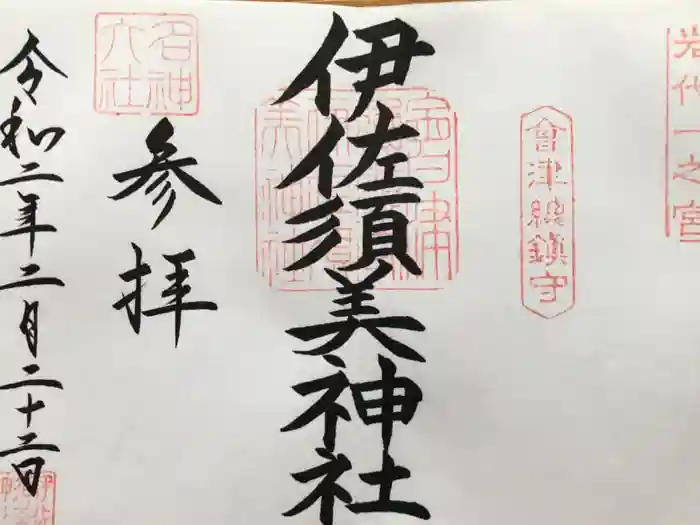 岩代一之宮
會津総鎮守
伊佐須美神社
参拝
名神大社
令和二年二月二十二日